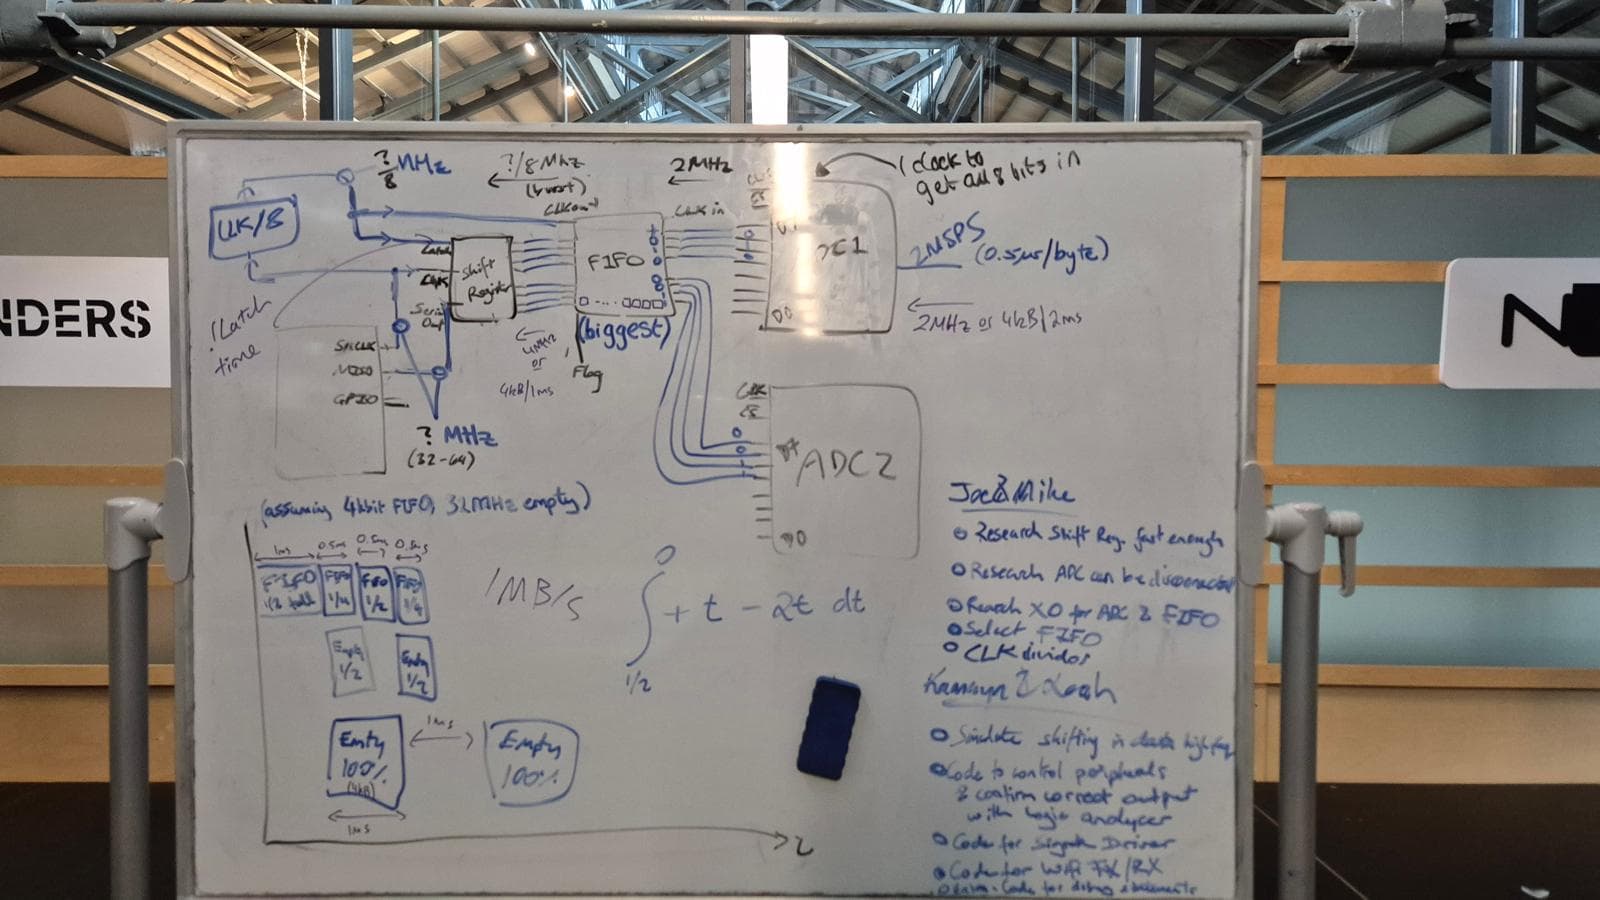 ?/8 MHz
?/8 Mhz
(burst)
2MHz
1 clock to
get all 8 bits in
CLK/8
CLKout
CLK in
Latch
Shift
Register
Serial
Out
FIFO
(biggest)
Flag
D7
D0
2MSPS (0.5µs/byte)
2MHz or 4kB/2ms
NDERS
1 Latch
time
SPICLK
MISO
GPIO
4MHz
or
4kB/1ms
? MHz
(32-64)
CLK
CS
D7
ADC2
D0
(assuming 4kbit FIFO, 32MHz empty)
1ms
0.5ms
0.5ms
0.5ms
FIFO
1/2 full
FIFO
1/4
FIFO
1/2
FIFO
1/4
Empty
1/2
Empty
1/2
1MB/s
0
∫ + t - 2t dt
1/2
Emty
100%
(4kB)
1ms
1ms
Empty
100%
Joe & Mike
Research Shift Reg. fast enough
Research ADC can be disconnected
Reach XO for ADC & FIFO
Select FIFO
CLK dividos
& Leah
Simulate shifting in data high freq
Code to control peripherals
& confirm correct output
with logic analycer
Code for Driver
Code for Wifi TX/RX
Code for debug statements
N